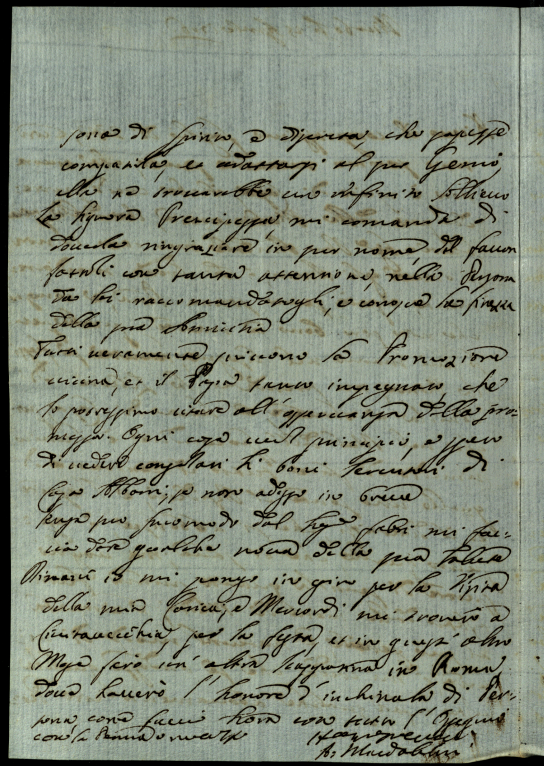 sona di spirito, e discreta, che sapesse
compatirla, et adattarsi al suo Genio,
ella ne trovarebbe un infinito sollievo
La Signora Prencipessa mi comanda di
doverla ringraziare in suo nome del favor
fattoli con tanta attenzione nella Persona
da lei raccomandatogli, e conosce la finezza
della sua Amicitia
Tutti veramente dicono la Promozione
vicina, et il Papa tanto impegnato che
lo potressimo citare all' osservanza della pro-
messa. Ogni cosa vuol principio, e spero
di vedere consolati li boni servitori di
Casa Albani, se non adesso in breve
senza suo incomodo dal Sig.e Fabri mi fac-
cia dare qualche nova della sua salute
Dimani io mi pongo in giro per la Visita
della mia Carica, e Mercordi mi trovarò a
Civitavecchia, per la festa, et in quest' altro
Mese farò un' altra scappatina in Roma,
dove haverò l' honore d' inchinarla di Per-
sona come faccio hora con tutto l' Ossequio
con la Penna